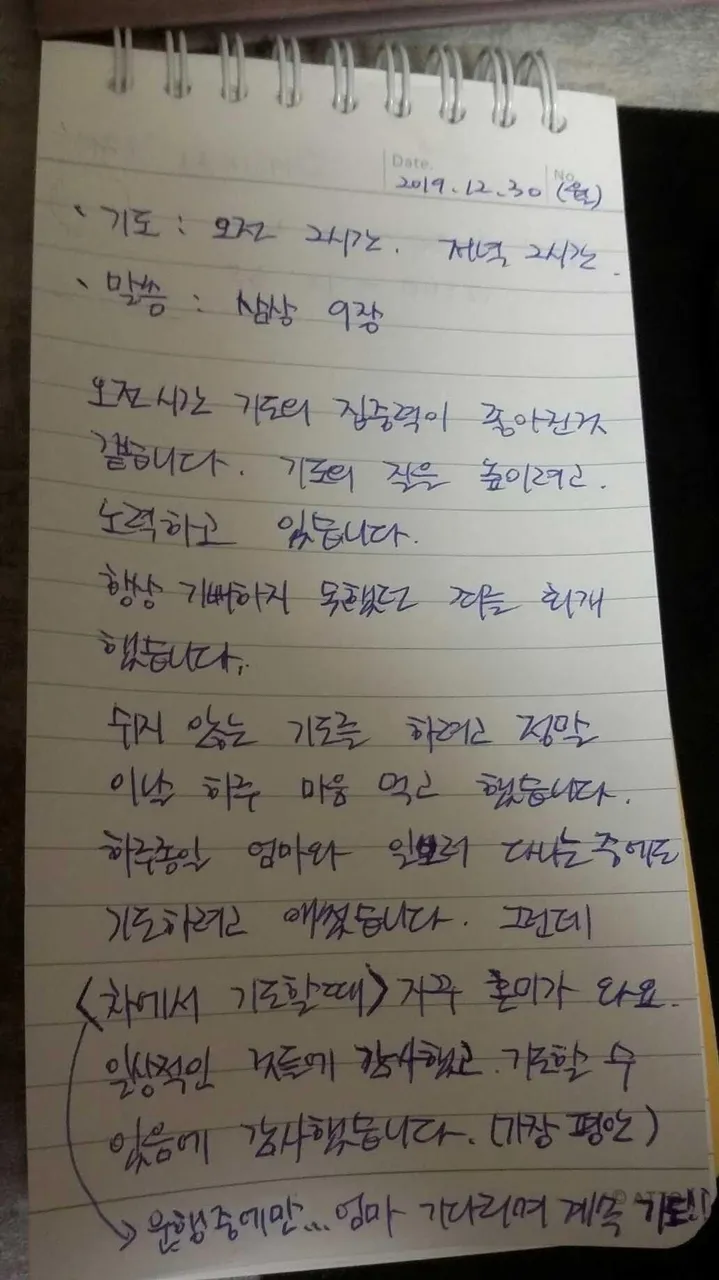 Date. No.
2019.12.30 (월)
· 기도 : 오전 2시간. 저녁 2시간.
· 말씀 : 삼상 9장
오전시간 기도의 집중력이 좋아진것
같습니다. 기도의 질을 높이려고.
노력하고 있습니다.
항상 기뻐하지 못했던 죄를 회개
했습니다.
쉬지 않는 기도를 하려고 정말
이날 하루 마음 먹고 했습니다.
하루종일 엄마와 일보러 다니는중에도
기도하려고 애썼습니다. 그런데
<차에서 기도할때> 자꾸 혼미가 와요.
일상적인 것들에 감사했고 기도할 수
있음에 감사했습니다. (가장 평안)
→ 운행중에만... 엄마 기다리며 계속 기도!!